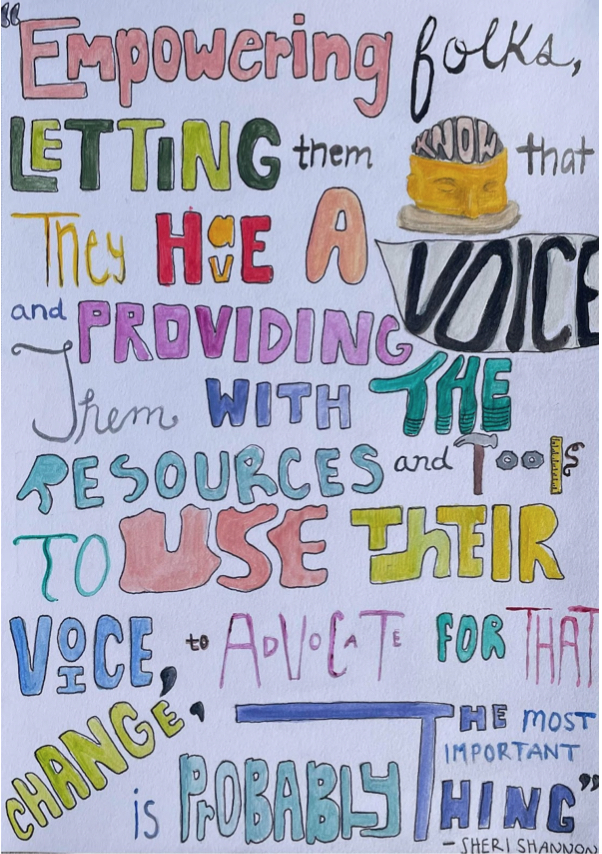 “Empowering folks,
LETTING them KNOW that
They HavE A VOICE
and PROVIDING
Them WITH THE
RESOURCES and TOOlS
TO USE THEIR
VOICE, to ADVOCATE FOR THAT
CHANGE, THE MOST
IMPORTANT
is PrOBABLY THING”
- SHERI SHANNON